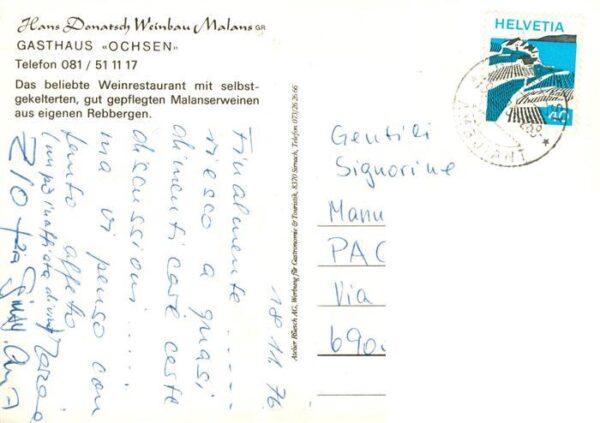 Hans Donatsch Weinbau Malans GR
GASTHAUS «OCHSEN»
Telefon 081 / 51 11 17
Das beliebte Weinrestaurant mit selbst-
gekelterten, gut gepflegten Malanserweinen
aus eigenen Rebbergen.
18 11 76
Finalmente ......
riesco a quasi
dimenticare ceste
discussioni .....
ma vi penso con
tanto affetto
ZIO
Atelier Rüesch AG, Werbung für Gastronomie & Touristik, 8370 Sirnach, Telefon 073/26 26 66
HELVETIA
40
AMBULANT
Gentili
Signorine
Manu
PAC
Via
690